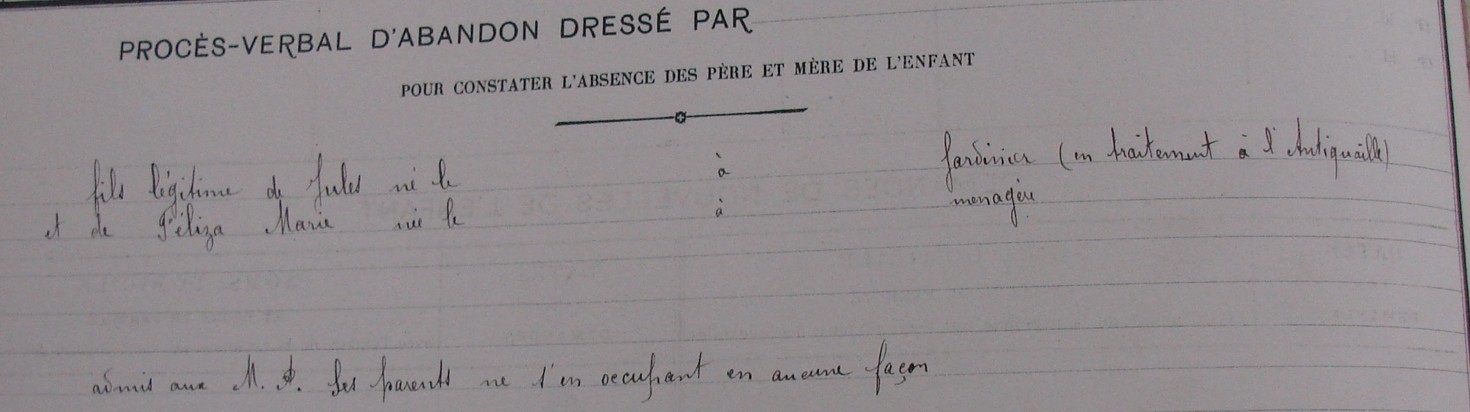 PROCÈS-VERBAL D'ABANDON DRESSÉ PAR
POUR CONSTATER L'ABSENCE DES PÈRE ET MÈRE DE L'ENFANT
fils légitime de Jules né le à Jardinier (en traitement à l'Antiquaille)
et de Féliza Marie née le à menagère
admis aux M. A. Ses parents ne s'en occupant en aucune façon